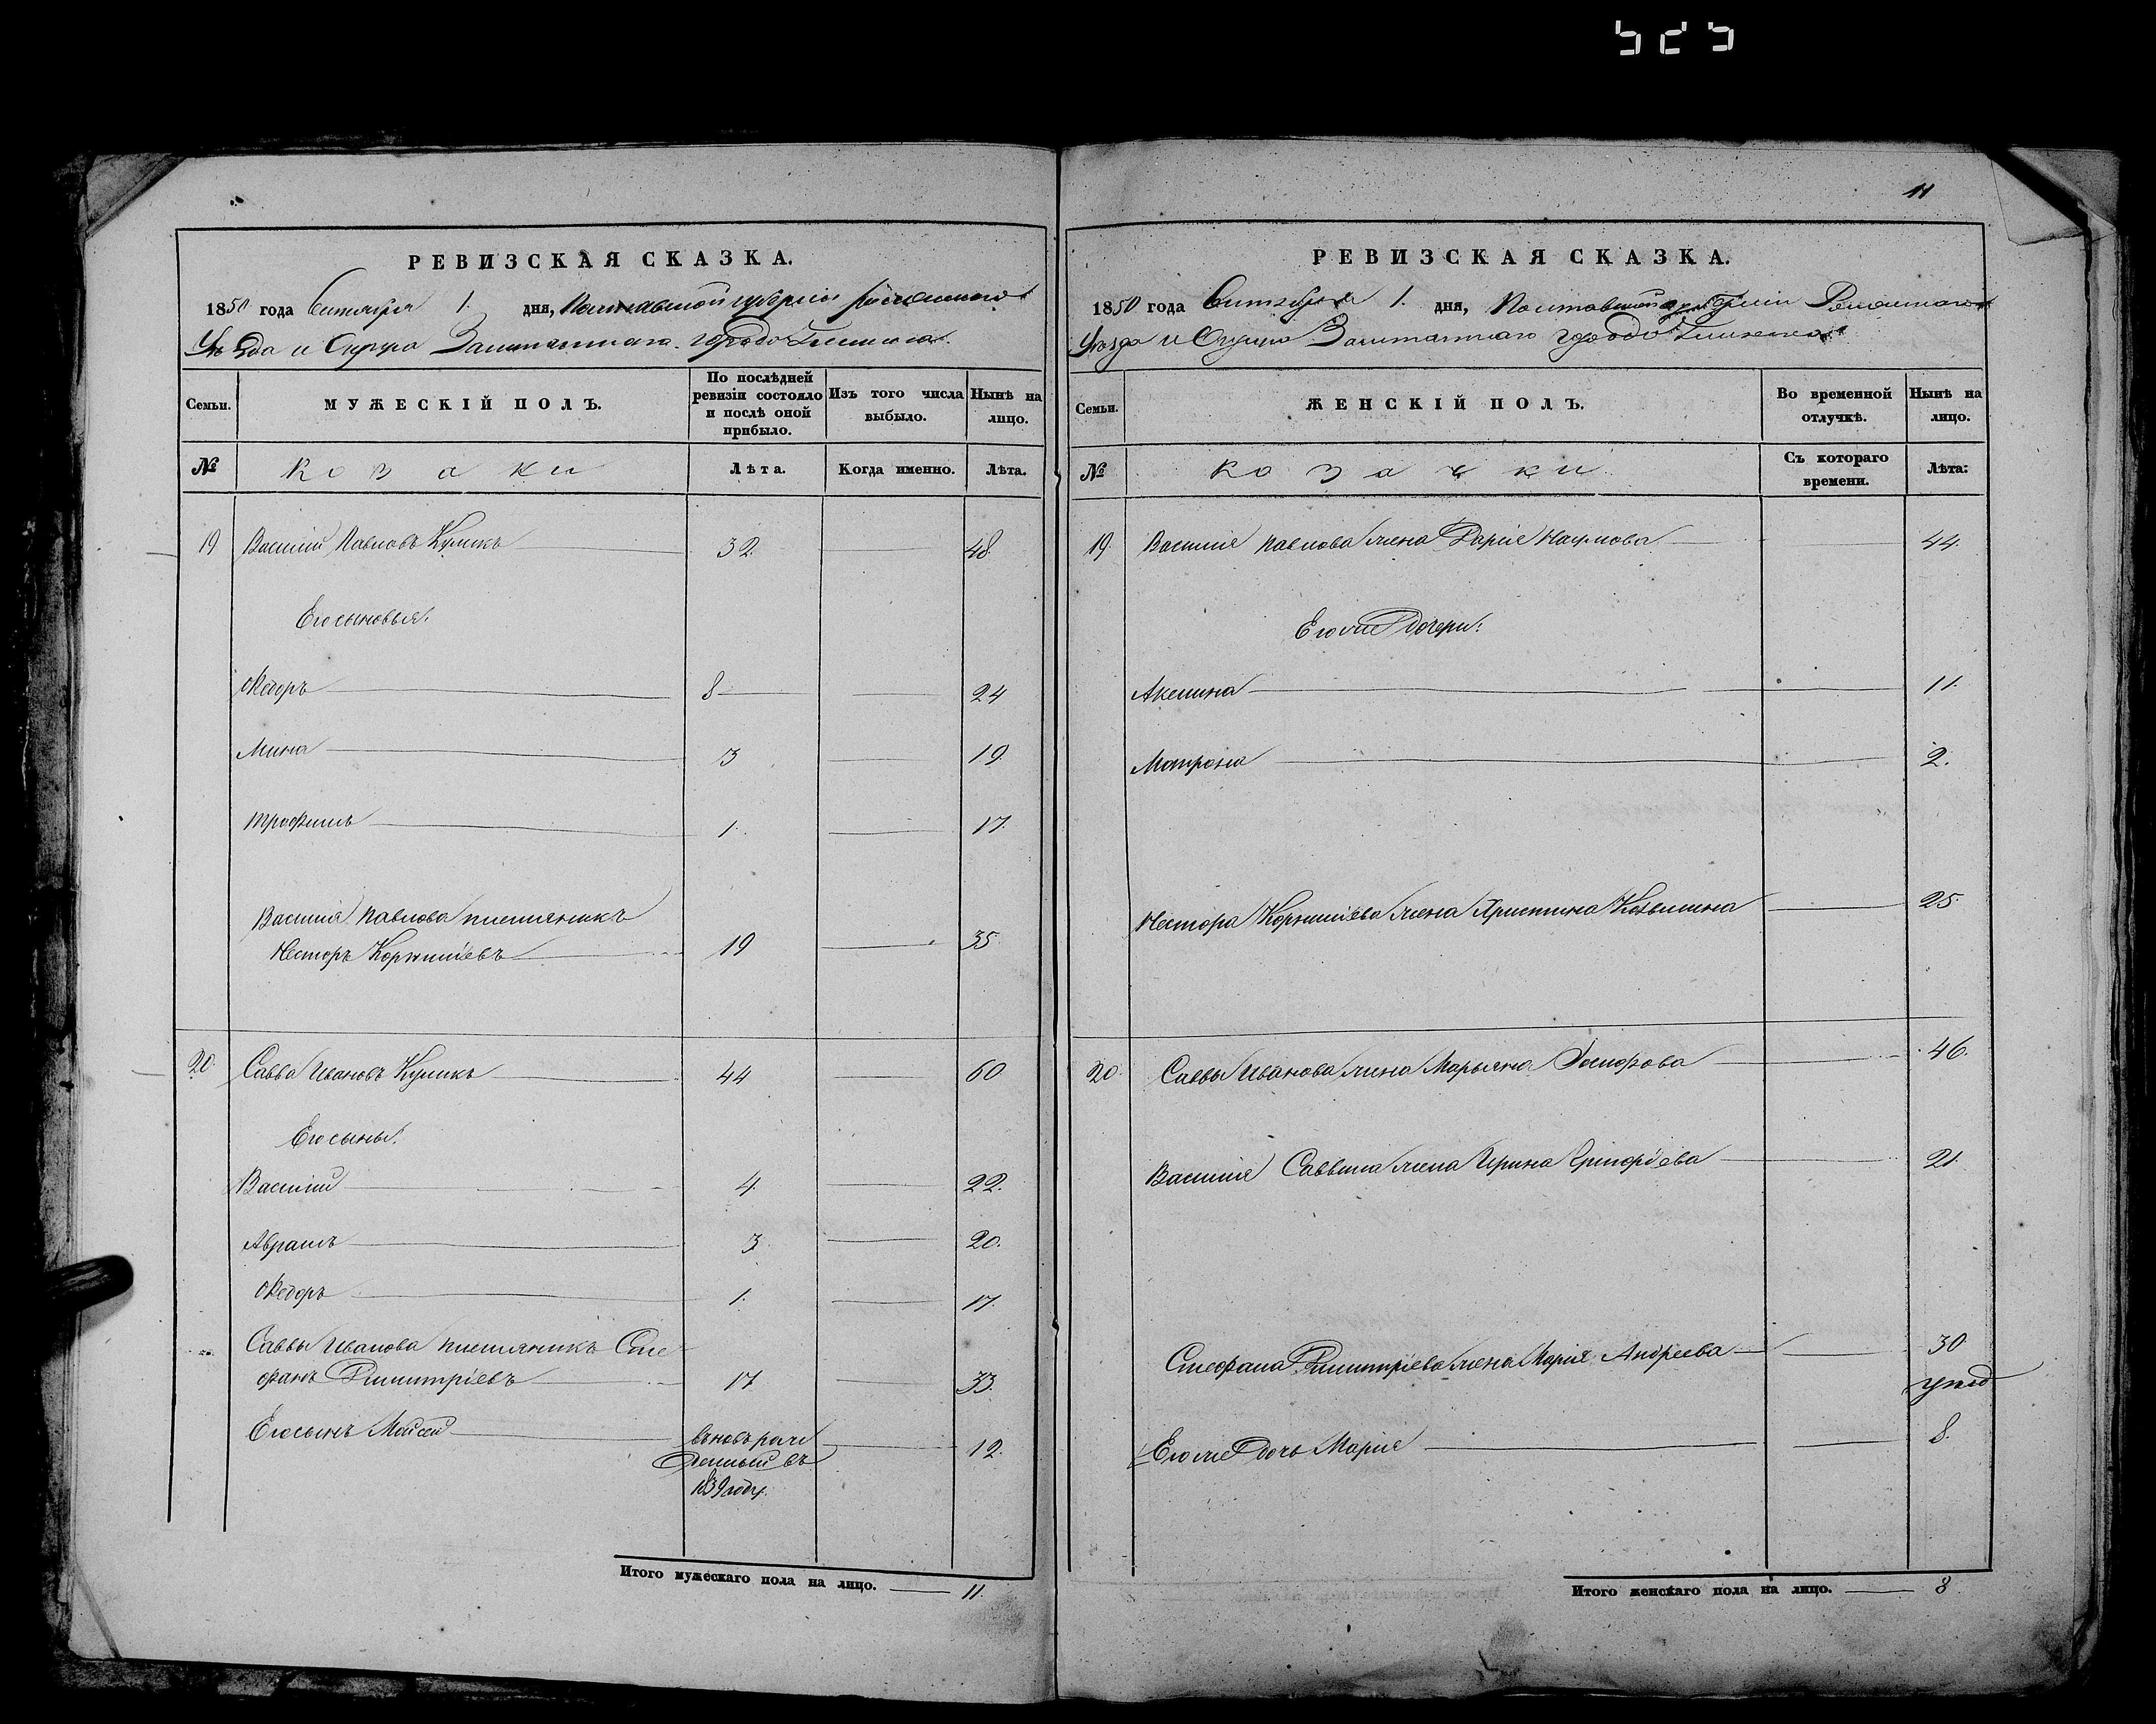 525
РЕВИЗСКАЯ СКАЗКА.
1850 года Сентября 1. дня, Полтавской губерніи Роменскаго
Уѣзда и Округа Заштатнаго города Глинска.
Семьи.
МУЖЕСКІЙ ПОЛЪ.
По послѣдней ревизіи состояло и послѣ оной прибыло.
Изъ того числа выбыло.
Нынѣ на лицо.
№ Козаки Лѣта. Когда именно. Лѣта.
19 Василій Павловъ Куликъ 32. 48.
Его сыновья.
Ѳедоръ 8 24
Мина 3 19.
Трофимъ 1. 17.
Василія Павлова племяникъ
Несторъ Корнилиевъ 19 35.
20. Савва Ивановъ Куликъ 44 60
Его сыны.
Василий 4. 22.
Аврамъ 3 20.
Ѳедоръ 1. 17.
Саввы Иванова племяникъ Сте
фанъ Димитріевъ 17 33.
Его сынъ Мойсей вновь рож
денный въ 12.
1839 году.
Итого мужескаго пола на лицо. 11.
11
РЕВИЗСКАЯ СКАЗКА.
1850 года Сентября 1. дня, Полтавской губерніи Роменскаго
Уѣзда и Округа Заштатнаго города Глинска.
Семьи.
ЖЕНСКІЙ ПОЛЪ.
Во временной отлучкѣ.
Нынѣ на лицо.
№ Козачки Съ котораго времени. Лѣта:
19. Василія Павлова жена Дарія Наумова 44.
Его же дочери:
Акелина 11.
Матрона 2.
Нестора Корнилиева жена Христина 25.
20. Саввы Иванова жена Марьяна Іосифова 46.
Василія Саввина жена Ирина Григоріева 21.
Стефана Димитріева жена Марія Андреева 30
Его же дочь Марія 8.
Итого женскаго пола на лицо. 8